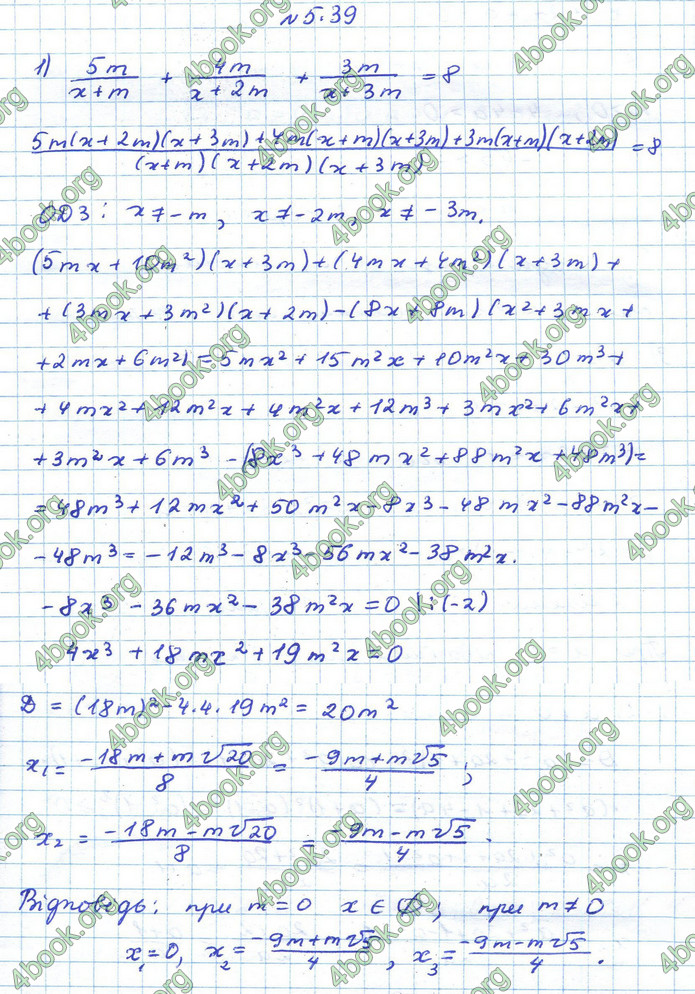 N 5.39
1) 5m/(x+m) + 4m/(x+2m) + 3m/(x+3m) = 8
(5m(x+2m)(x+3m)+4m(x+m)(x+3m)+3m(x+m)(x+2m))/((x+m)(x+2m)(x+3m)) = 8
ОДЗ: x≠-m, x≠-2m, x≠-3m.
(5mx+10m²)(x+3m)+(4mx+4m²)(x+3m)+
+(3mx+3m²)(x+2m)-(8x+8m)(x²+3mx+
+2mx+6m²)=5mx²+15m²x+10m²x+30m³+
+4mx²+12m²x+4m²x+12m³+3mx²+6m²x+
+3m²x+6m³-(8x³+48mx²+88m²x+48m³)=
=48m³+12mx²+50m²x-8x³-48mx²-88m²x-
-48m³=-12m³-8x³-56mx²-38m²x.
-8x³-36mx²-38m²x=0 |:(-2)
4x³+18mx²+19m²x=0
D=(18m)²-4.4.19m²=20m²
x₁=(-18m+m√20)/8=(-9m+m√5)/4;
x₂=(-18m-m√20)/8=(-9m-m√5)/4.
Відповідь: при m=0 x∈Ø; при m≠0
x₁=0, x₂=(-9m+m√5)/4, x₃=(-9m-m√5)/4.
4book.org